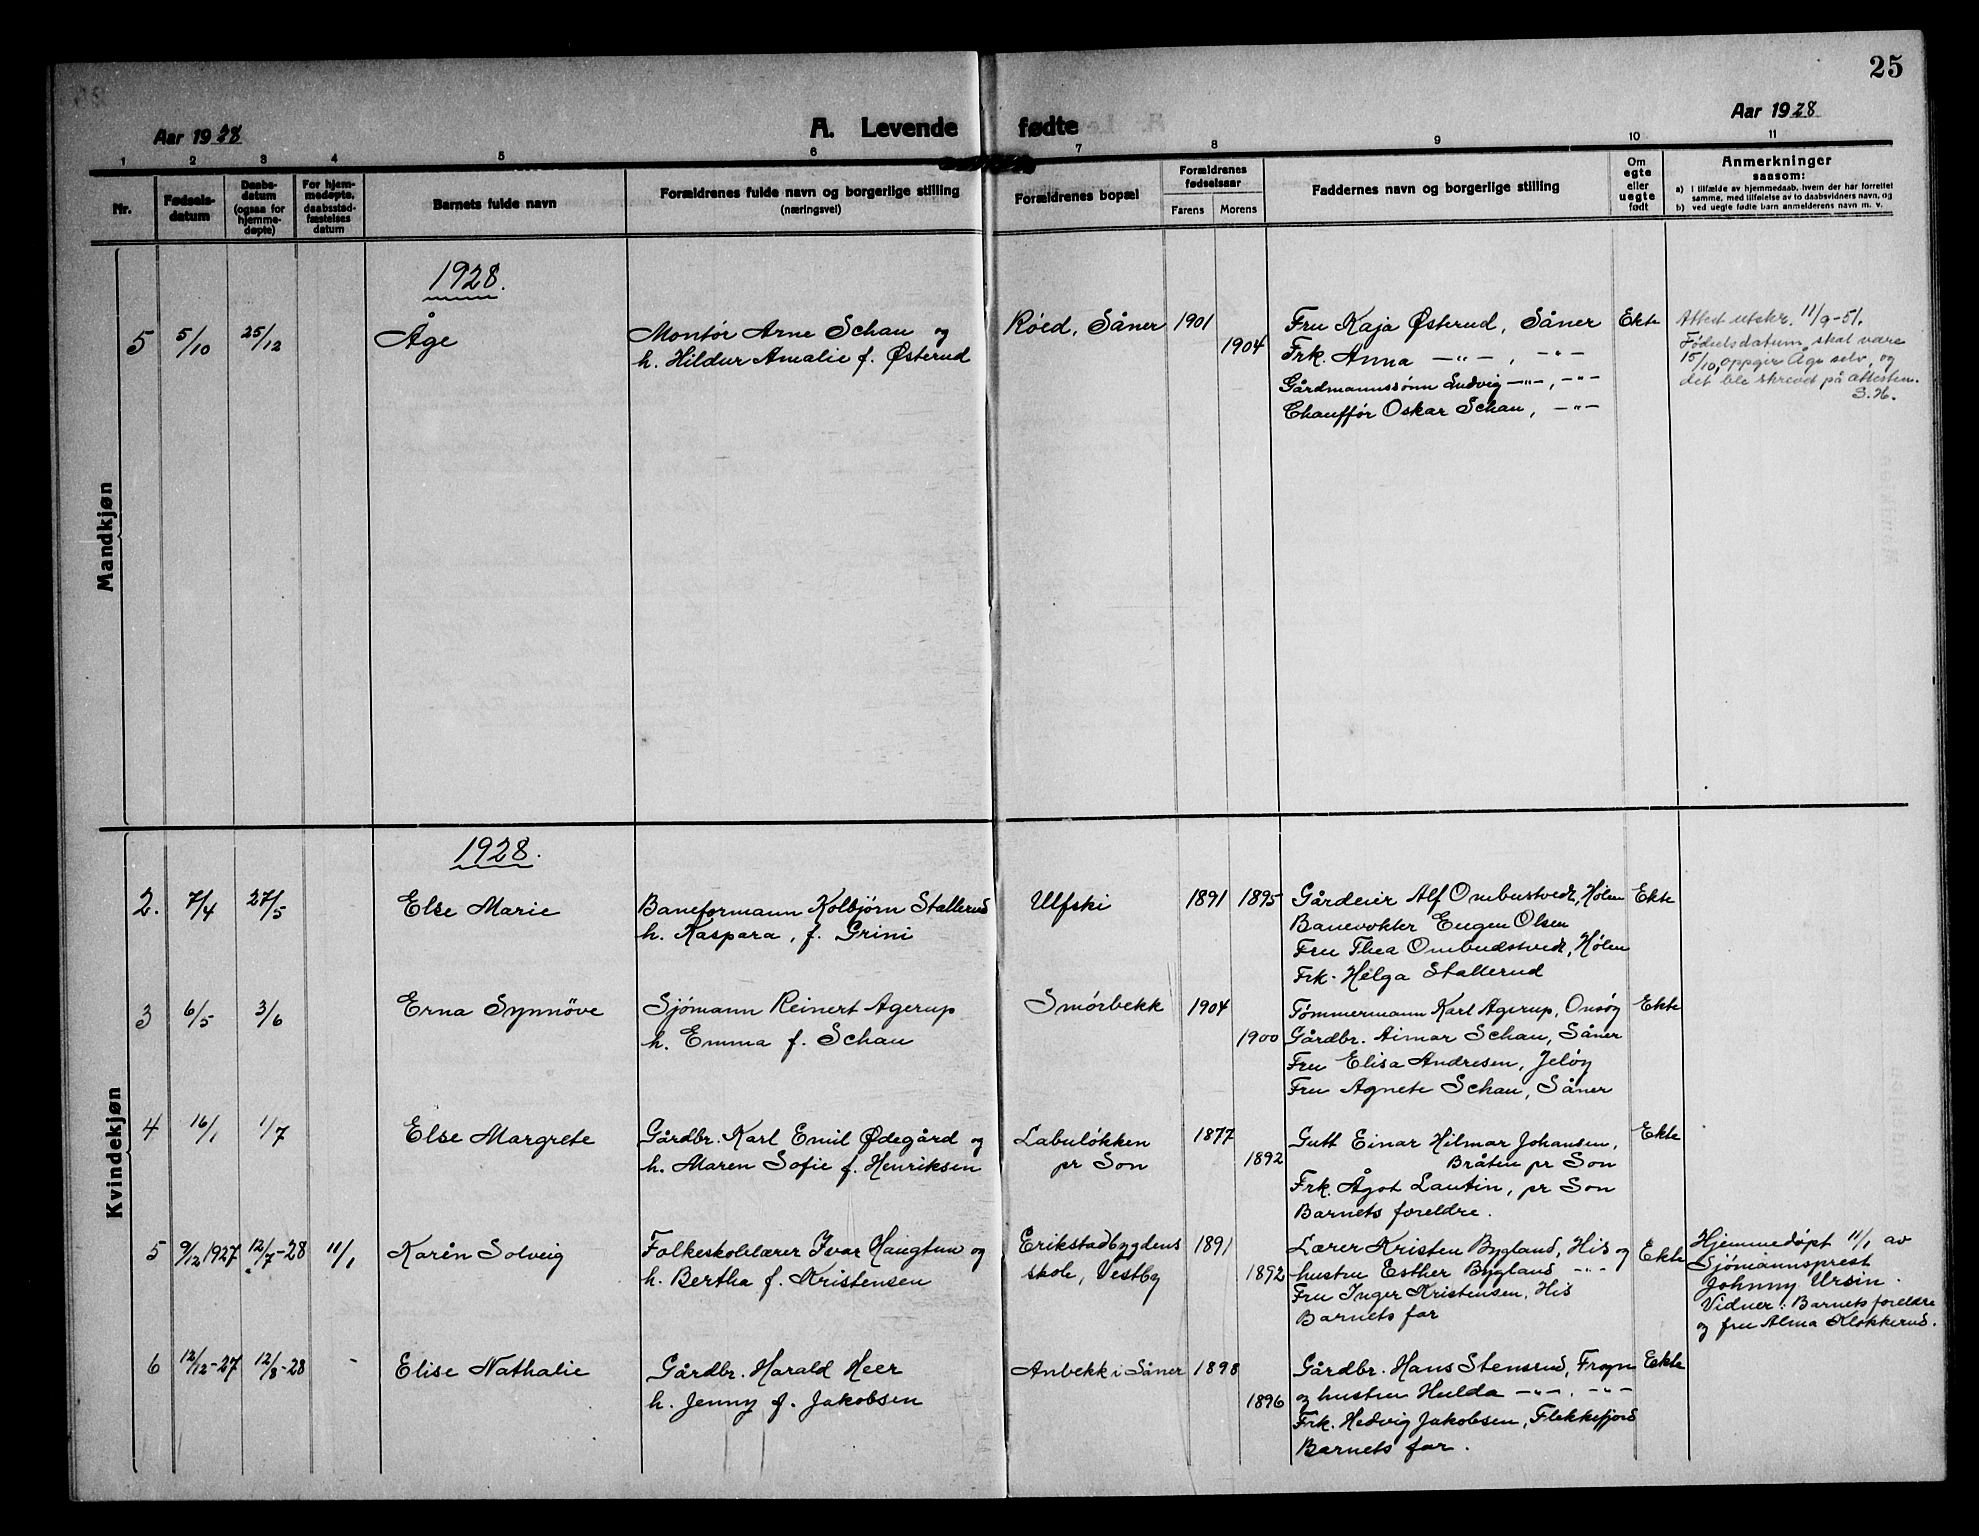 25
Aar 1928
A. Levende fødte
Aar 1928
1 2 3 4 5 6 7 8 9 10 11
Nr.
Fødsels-
datum
Daabs-
datum
(ogsaa for
hjemme-
døpte)
For hjem-
medøpte,
daabsstad-
fæstelses
datum
Barnets fulde navn
Forældrenes fulde navn og borgerlige stilling
(næringsvei)
Forældrenes bopæl
Forældrenes
fødselsaar
Farens Morens
Faddernes navn og borgerlige stilling
Om
egte
eller
uegte
født
Anmerkninger
saasom:
a) i tilfælde av hjemmedaab, hvem der har forrettet
samme, med tilføielse av to daabsvidners navn, og
b) ved uegte fødte barn anmelderens navn m. v.
Mandkjøn
1928.
5 5/10 25/12 Åge
Montør Arne Schau og
h. Hildur Amalie f. Østerud
Røed, Såner 1901
1904
Fru Kaja Østerud, Såner
Frk. Anna —"—, —"—
Gårdmannssønn Ludvig —"—, —"—
Chauffør Oskar Schau, —"—
Ekte
Attest utskr. 11/9-51.
Fødselsdatum skal være
15/10, oppgir Åge selv, og
det ble skrevet på attesten.
S.H.
Kvindekjøn
1928.
2. 7/4 27/5 Else Marie
Baneformann Kolbjørn Stallerud
h. Kaspara, f. Grini
Ulfski 1891 1895
Gårdeier Alf Ombustvedt, Hølen
Banevokter Eugen Olsen
Fru Thea Ombudstvedt, Hølen
Frk. Helga Stallerud
Ekte
3 6/5 3/6 Erna Synnöve
Sjømann Reinert Agerup
h. Emma f. Schau
Smørbekk 1904
1900
Tømmermann Karl Agerup, Onsøy
Gårdbr. Aimar Schau, Såner
Fru Elisa Andresen, Jeløy
Fru Agnete Schau, Såner
Ekte
4 16/1 1/7 Else Margrete
Gårdbr. Karl Emil Ødegård og
h. Maren Sofie f. Henriksen
Labuløkken
pr Son
1877
1892
Gutt Einar Hilmar Johansen,
Bråten pr Son
Frk. Ågot Lautin, pr Son
Barnets foreldre.
Ekte
5 9/12 1927 12/7-28 11/1 Karén Solveig
Folkeskolelærer Ivar Haugtun og
h. Bertha f. Kristensen
Erikstadbygdens
skole, Vestby
1891
1892
Lærer Kristen Bygland, His og
hustru Esther Bygland —"—
Fru Inger Kristensen, His
Barnets far
Ekte
Hjemmedøpt 11/1 av
Sjømannsprest
Johnny Ursin.
Vidner: Barnets foreldre
og fru Alma Klokkerud.
6 12/12-27 12/8-28 - Elise Nathalie
Gårdbr. Harald Heer
h. Jenny f. Jakobsen
Anbekk i Såner 1898
1896
Gårdbr. Hans Stensrud, Frogn
og hustru Hulda —"—, —"—
Frk. Hedvig Jakobsen, Flekkefjord
Barnets far.
Ekte